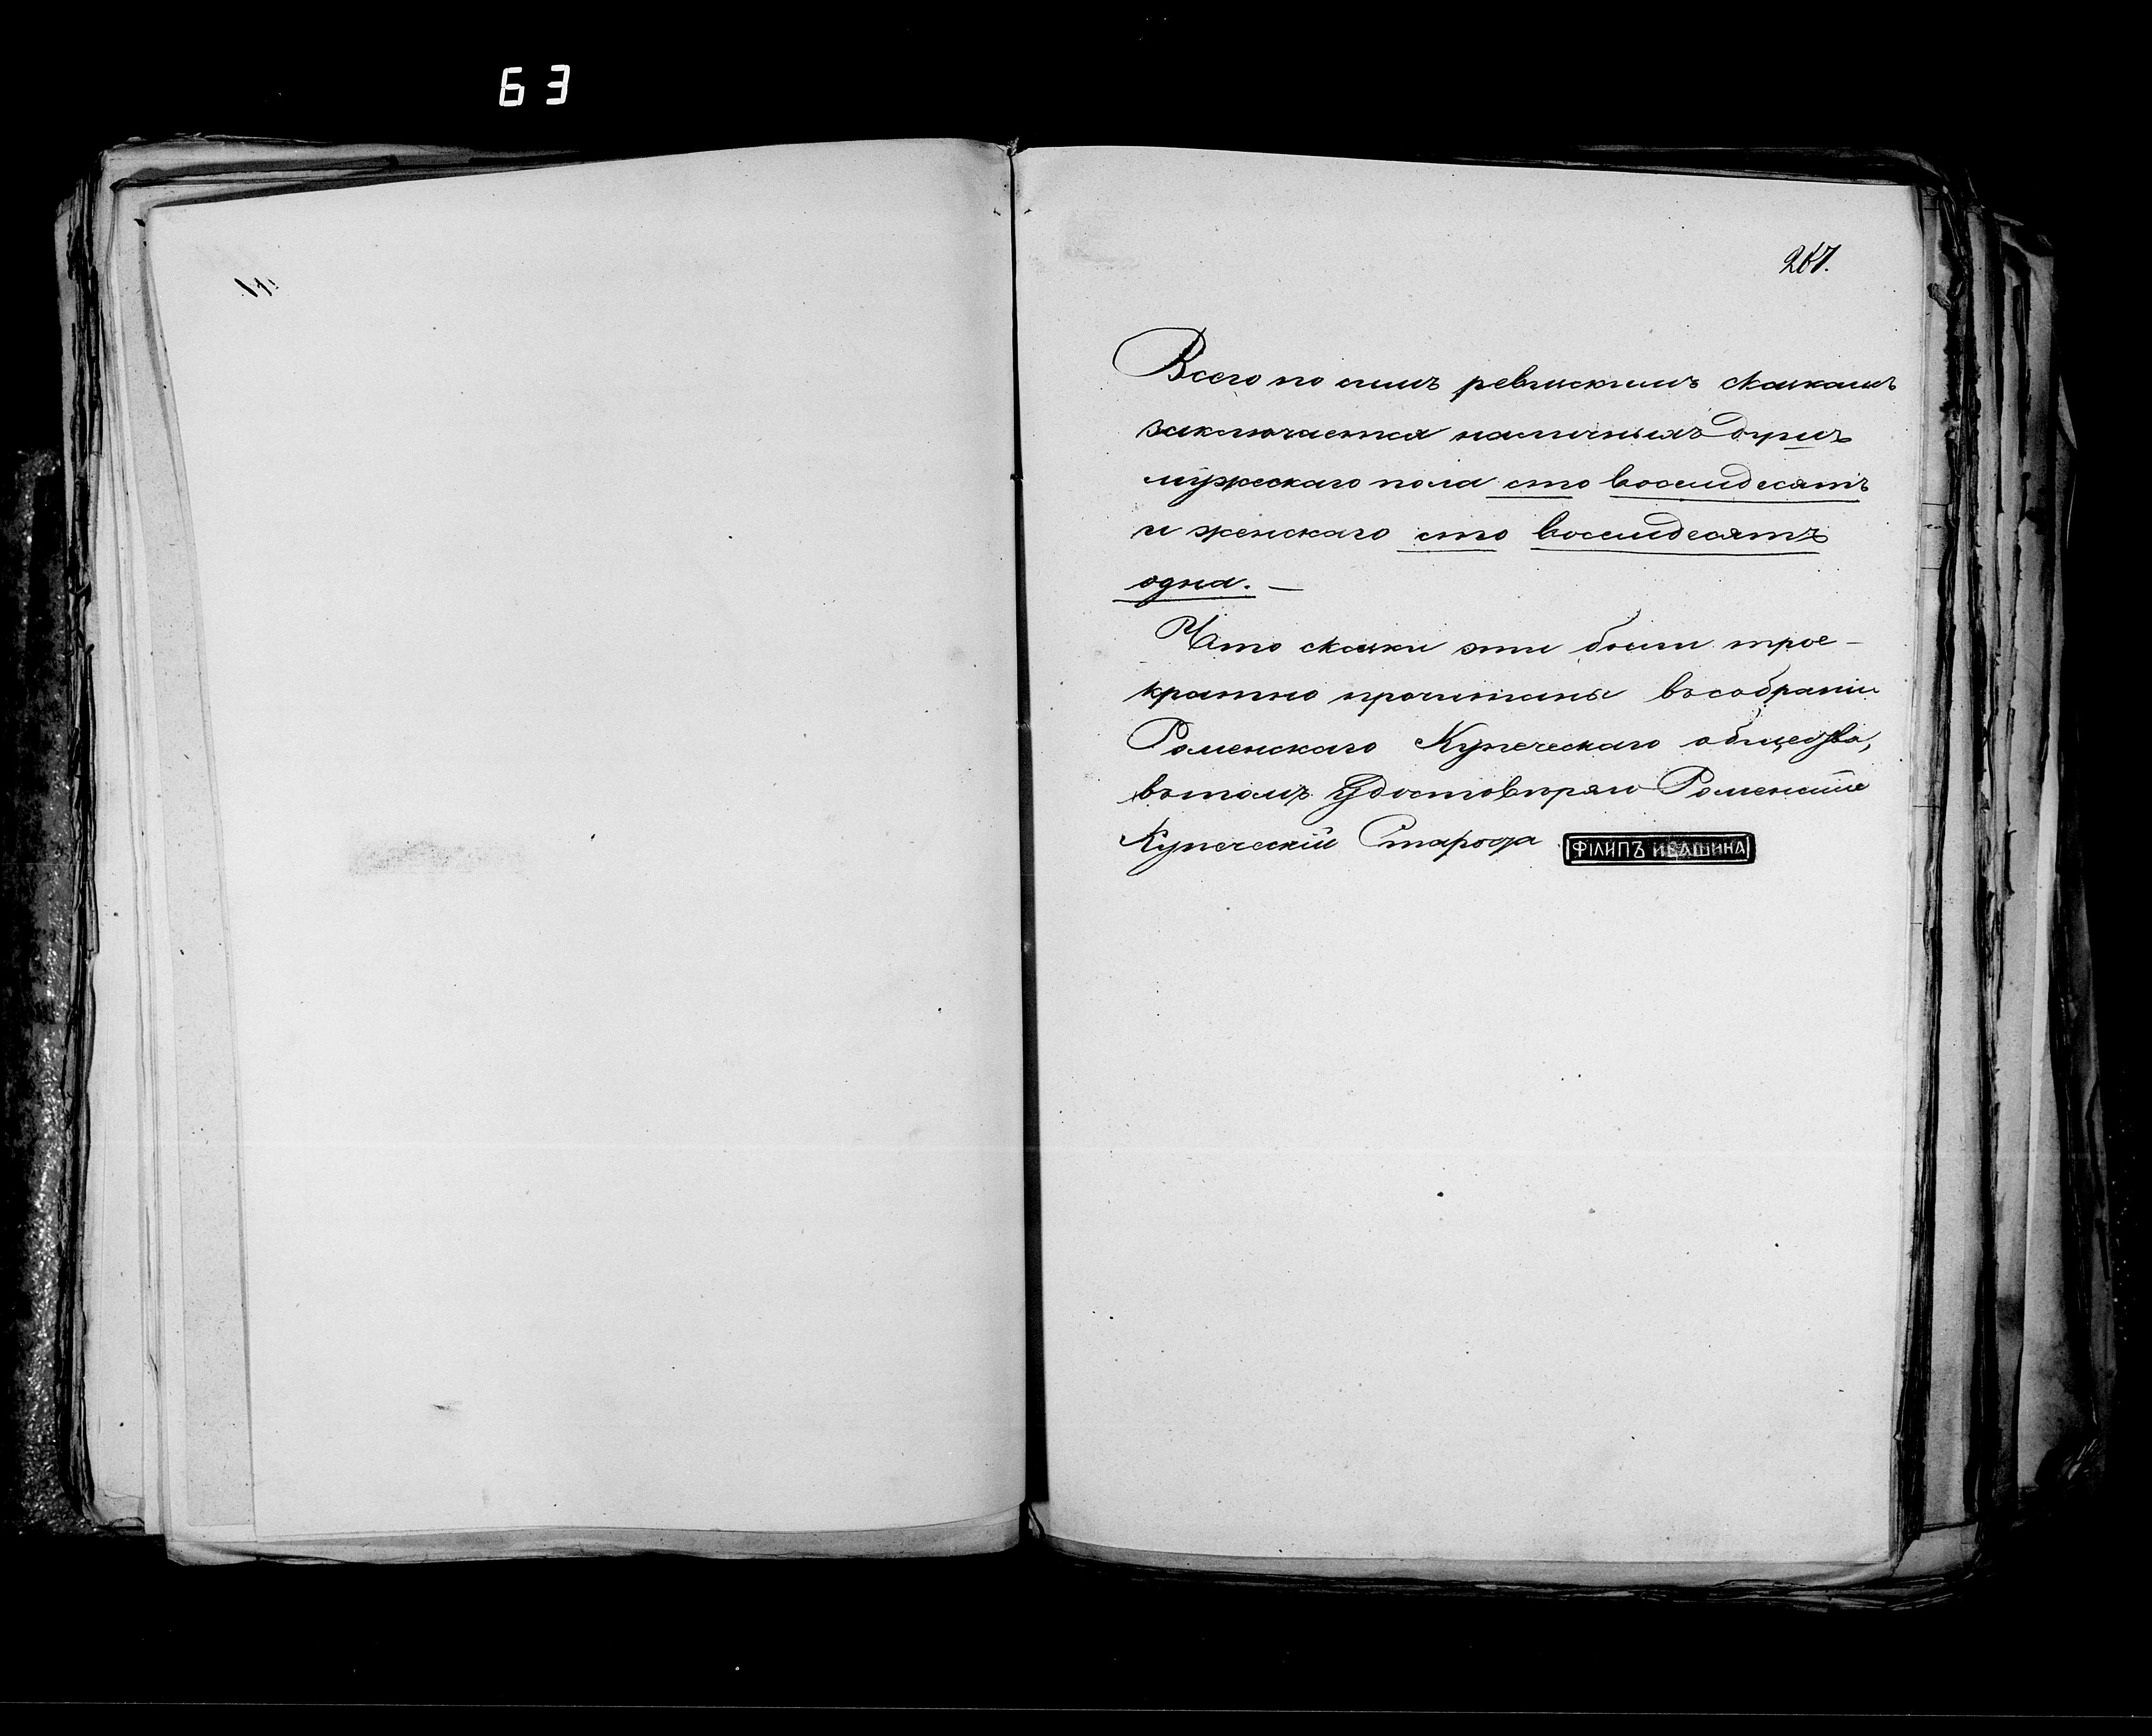 63
267.
Всего по симъ ревизскимъ сказкамъ
заключается наличныхъ душъ
мужескаго пола сто восемдесятъ
и женскаго сто восемдесятъ
одна. —
Что сказки эти были трое-
кратно прочитаны въ собраніи
Роменскаго Купеческаго общества,
въ томъ удостовѣряю Роменскій
Купеческій Староста ФІЛИПЪ